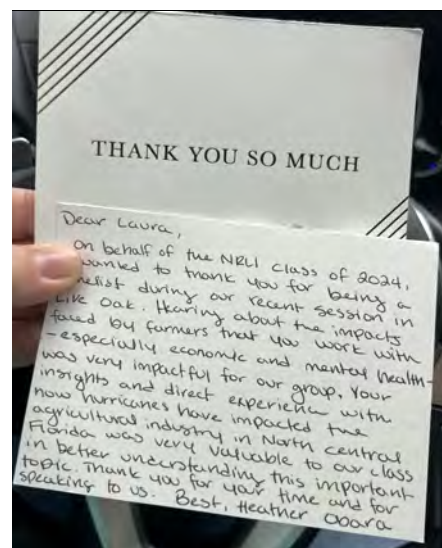 THANK YOU SO MUCH
Dear Laura,
On behalf of the NRLI class of 2024,
wanted to thank you for being a
nelist during our recent session in
Live Oak. Hearing about the impacts
faced by farmers that you work with
- especially economic and mental health -
was very impactful for our group. Your
insights and direct experience with
how hurricanes have impacted the
agricultural industry in North central
Florida was very valuable to our class
in better understanding this important
topic. Thank you for your time and for
speaking to us. Best, Heather Obara